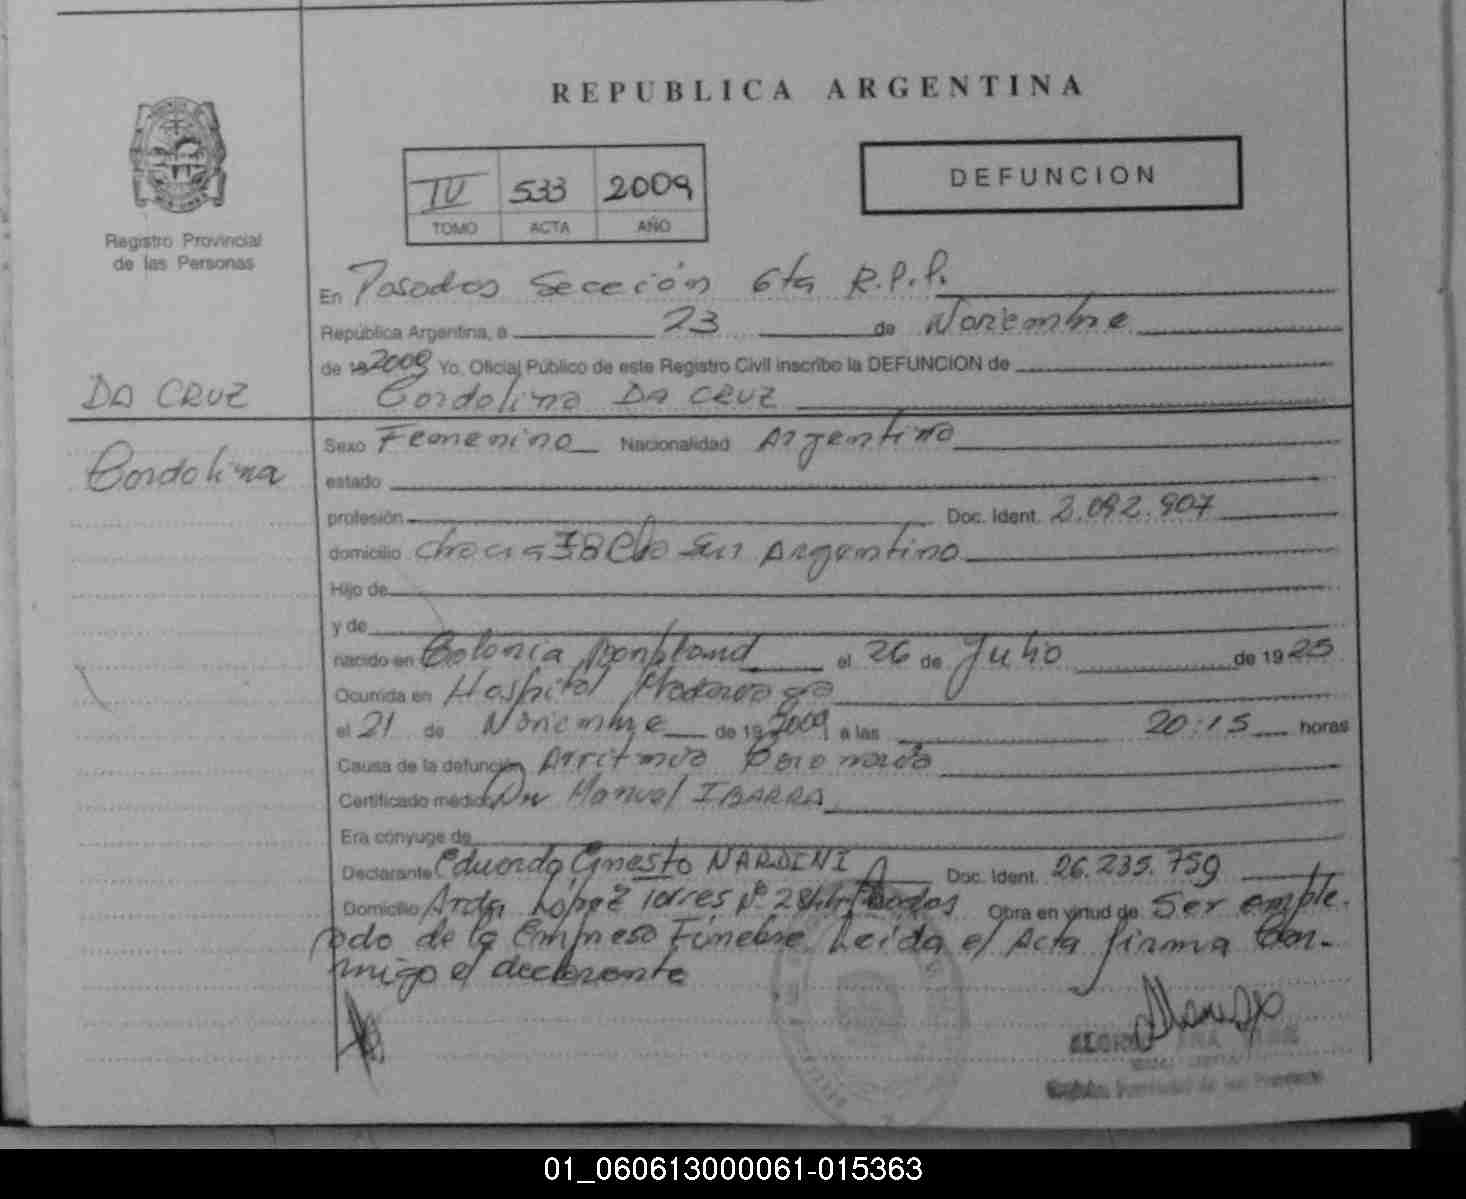 REPUBLICA ARGENTINA
DEFUNCION
IV 533 2009
TOMO ACTA AÑO
Registro Provincial
de las Personas
En Posadas Sección 6ta R.P.P.
República Argentina, a 23 de Noviembre
de 19 2009 Yo, Oficial Público de este Registro Civil inscribo la DEFUNCION de
DA CRUZ
Cordolina DA CRUZ
Cordolina
Sexo Femenino Nacionalidad Argentina
estado
profesión Doc. Ident. 2.092.907
domicilio Chacra 38 Argentino
Hijo de
y de
nacido en Colonia Bonpland el 26 de Julio de 19 25
Ocurrida en Hospital Madariaga
el 21 de Noviembre de 19 2009 a las 20:15 horas
Causa de la defunción Arritmia
Certificado médico Dr Manuel IBARRA
Era cónyuge de
Declarante Eduardo Ernesto NARDINI Doc. Ident. 26.235.759
Domicilio Avda López Torres Nº 2844 Posadas Obra en virtud de Ser emple-
ado de la Empresa Fúnebre. Leida el Acta firma Con-
migo el declarante
Provincial de las Personas
01_060613000061-015363